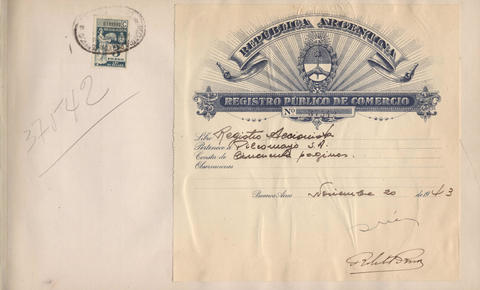 37542
REPÚBLICA ARGENTINA
REGISTRO PÚBLICO DE COMERCIO
Nº
Libro Registro Accionista
Pertenece á Pilcomayo S.A.
Consta de Cincuenta paginas.
Observaciones
Buenos Aires Noviembre 20 de 1943